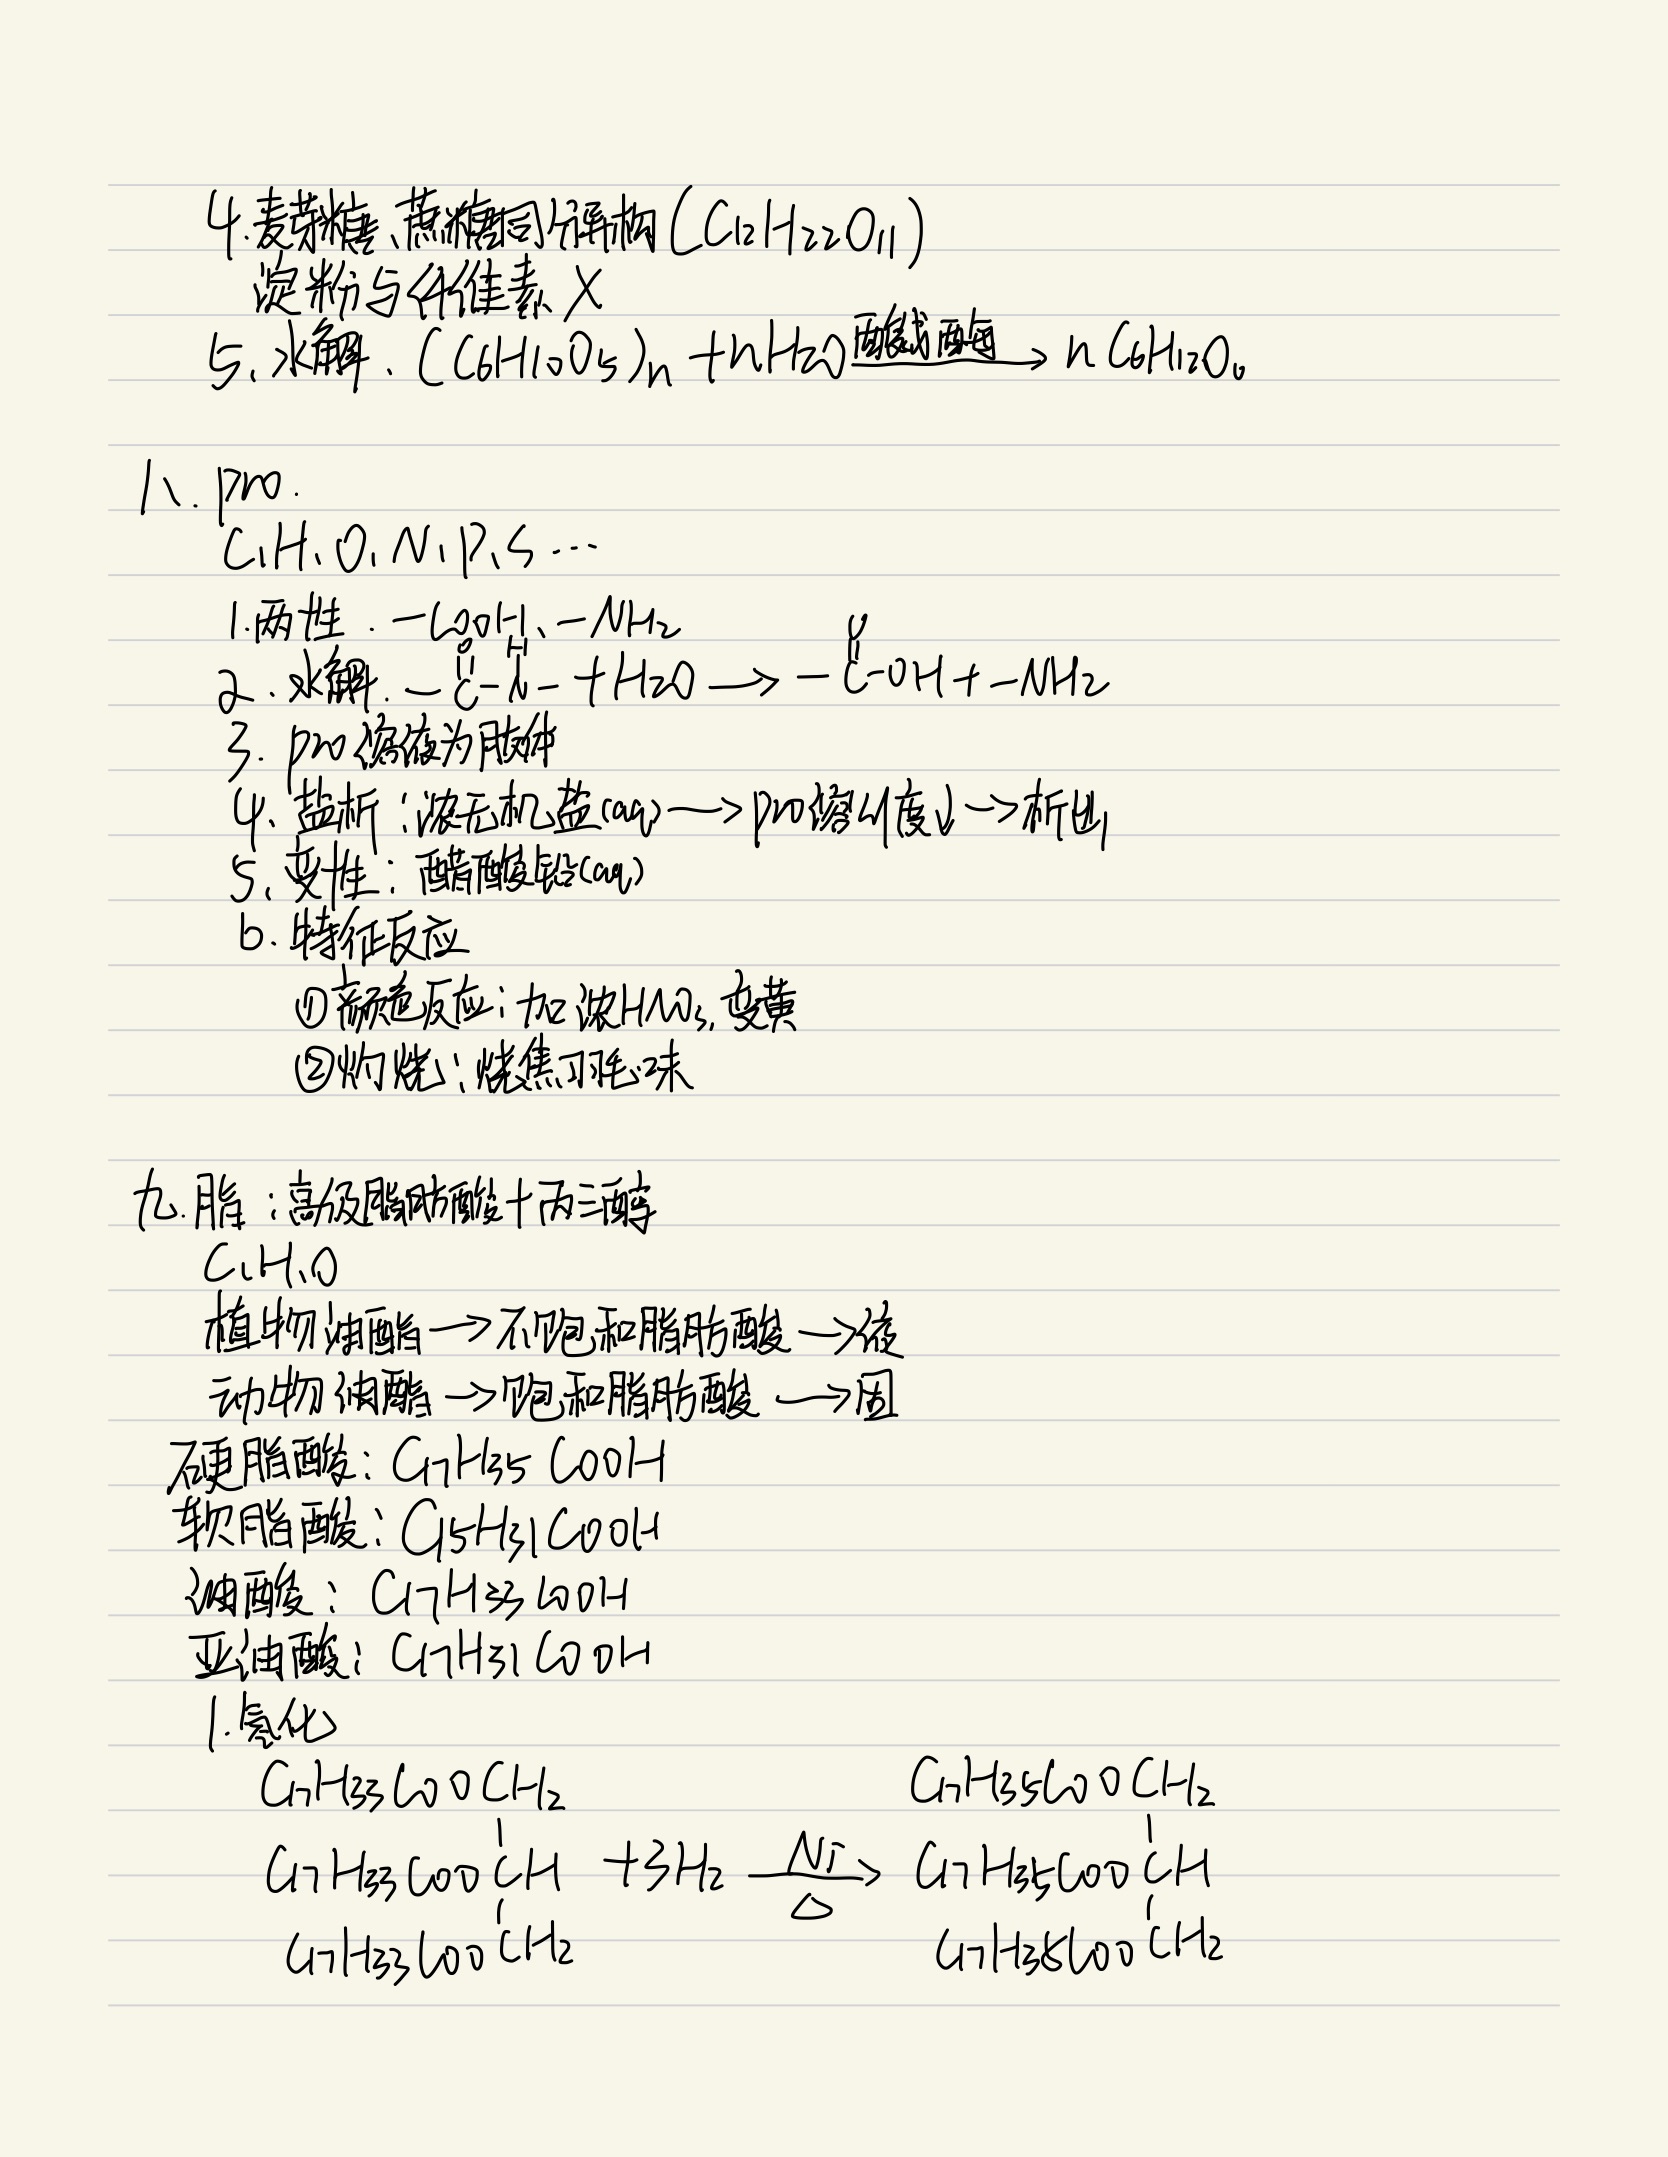 4.麦芽糖、蔗糖同分异构(C12H22O11)
淀粉与纤维素 X
5、水解.(C6H10O5)n+nH2O 酸或酶→ nC6H12O6
八. pro.
C、H、O、N、P、S…
1.两性.-COOH、-NH2
O H O
2.水解.-C-N-+H2O→-C-OH+-NH2
3. pro溶液为胶体
4、盐析:浓无机盐(aq)→pro溶解度↓→析出
5、变性:醋酸铅(aq)
6.特征反应
①颜色反应:加浓HNO3,变黄
②灼烧:烧焦羽毛味
九.脂:高级脂肪酸+丙三醇
C、H、O
植物油酯→不饱和脂肪酸→液
动物油酯→饱和脂肪酸→固
硬脂酸:C17H35COOH
软脂酸:C15H31COOH
油酸:C17H33COOH
亚油酸:C17H31COOH
1.氢化
C17H33COOCH2 C17H35COOCH2
C17H33COOCH +3H2 Ni→ C17H35COOCH
△
C17H33COOCH2 C17H35COOCH2